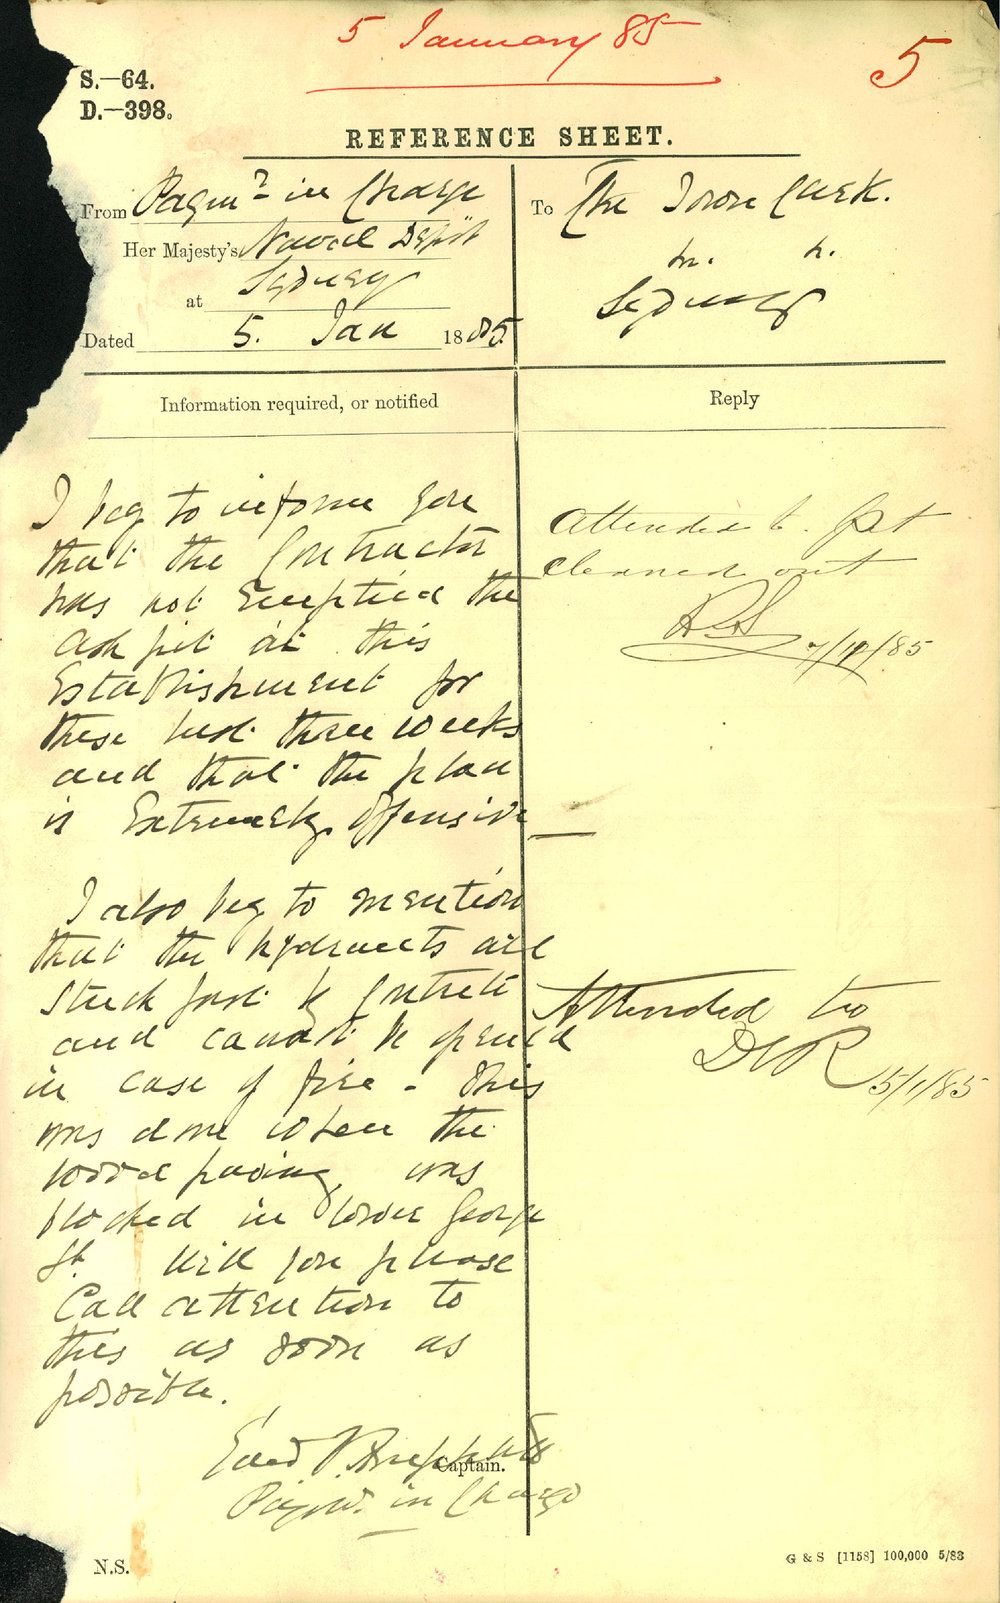 5 January 85
5
S.—64.
D.—398.
REFERENCE SHEET.
From Paymr in Charge
Her Majesty's Naval Depôt
at Sydney
Dated 5. Jan 1885.
To The Town Clerk.
Sydney
Information required, or notified
Reply
I beg to inform you
that the Contractor
has not emptied the
Ash pit at this
Establishment for
these last three weeks
and that the place
is Extremely Offensive
I also beg to mention
that the hydrants are
stuck fast by Concrete
and cannot be opened
in case of fire - This
was done when the
wood paving was
blocked in lower George
St. Will you please
Call attention to
this as soon as
possible.
Captain.
Paymr. in Charge
Attended to. Pit
cleaned out
Attended to
5/1/85
N.S.
G & S [1158] 100,000 5/83